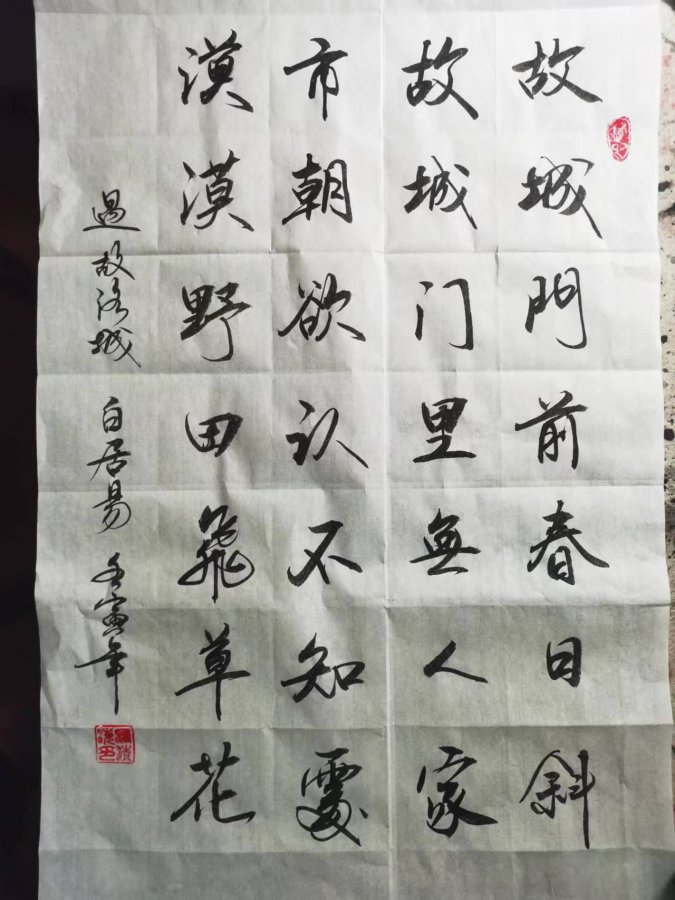 故城門前春日斜
故城门里無人家
市朝欲认不知處
漠漠野田飛草花
過故洛城 白居易 壬寅年